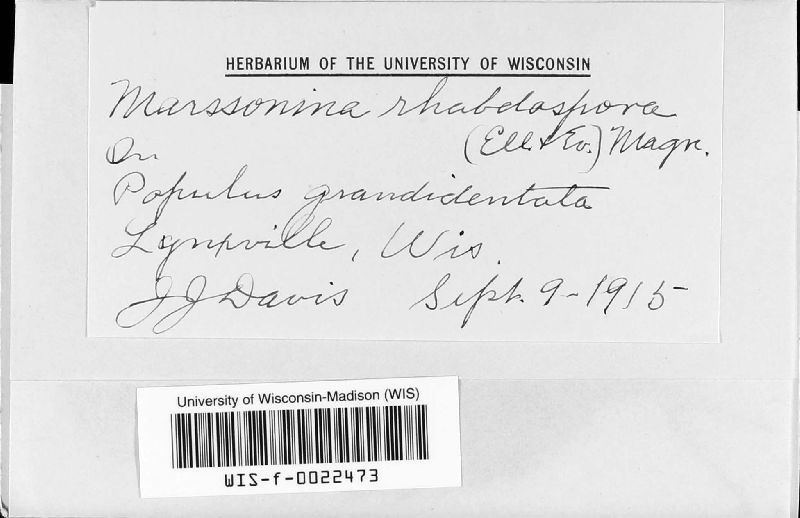 HERBARIUM OF THE UNIVERSITY OF WISCONSIN
Marssonina rhabdospora
(Ell. & Ev.) Magn.
On
Populus grandidentata
Lynxville, Wis.
JJ Davis Sept. 9-1915
University of Wisconsin-Madison (WIS)
WIS-f-0022473